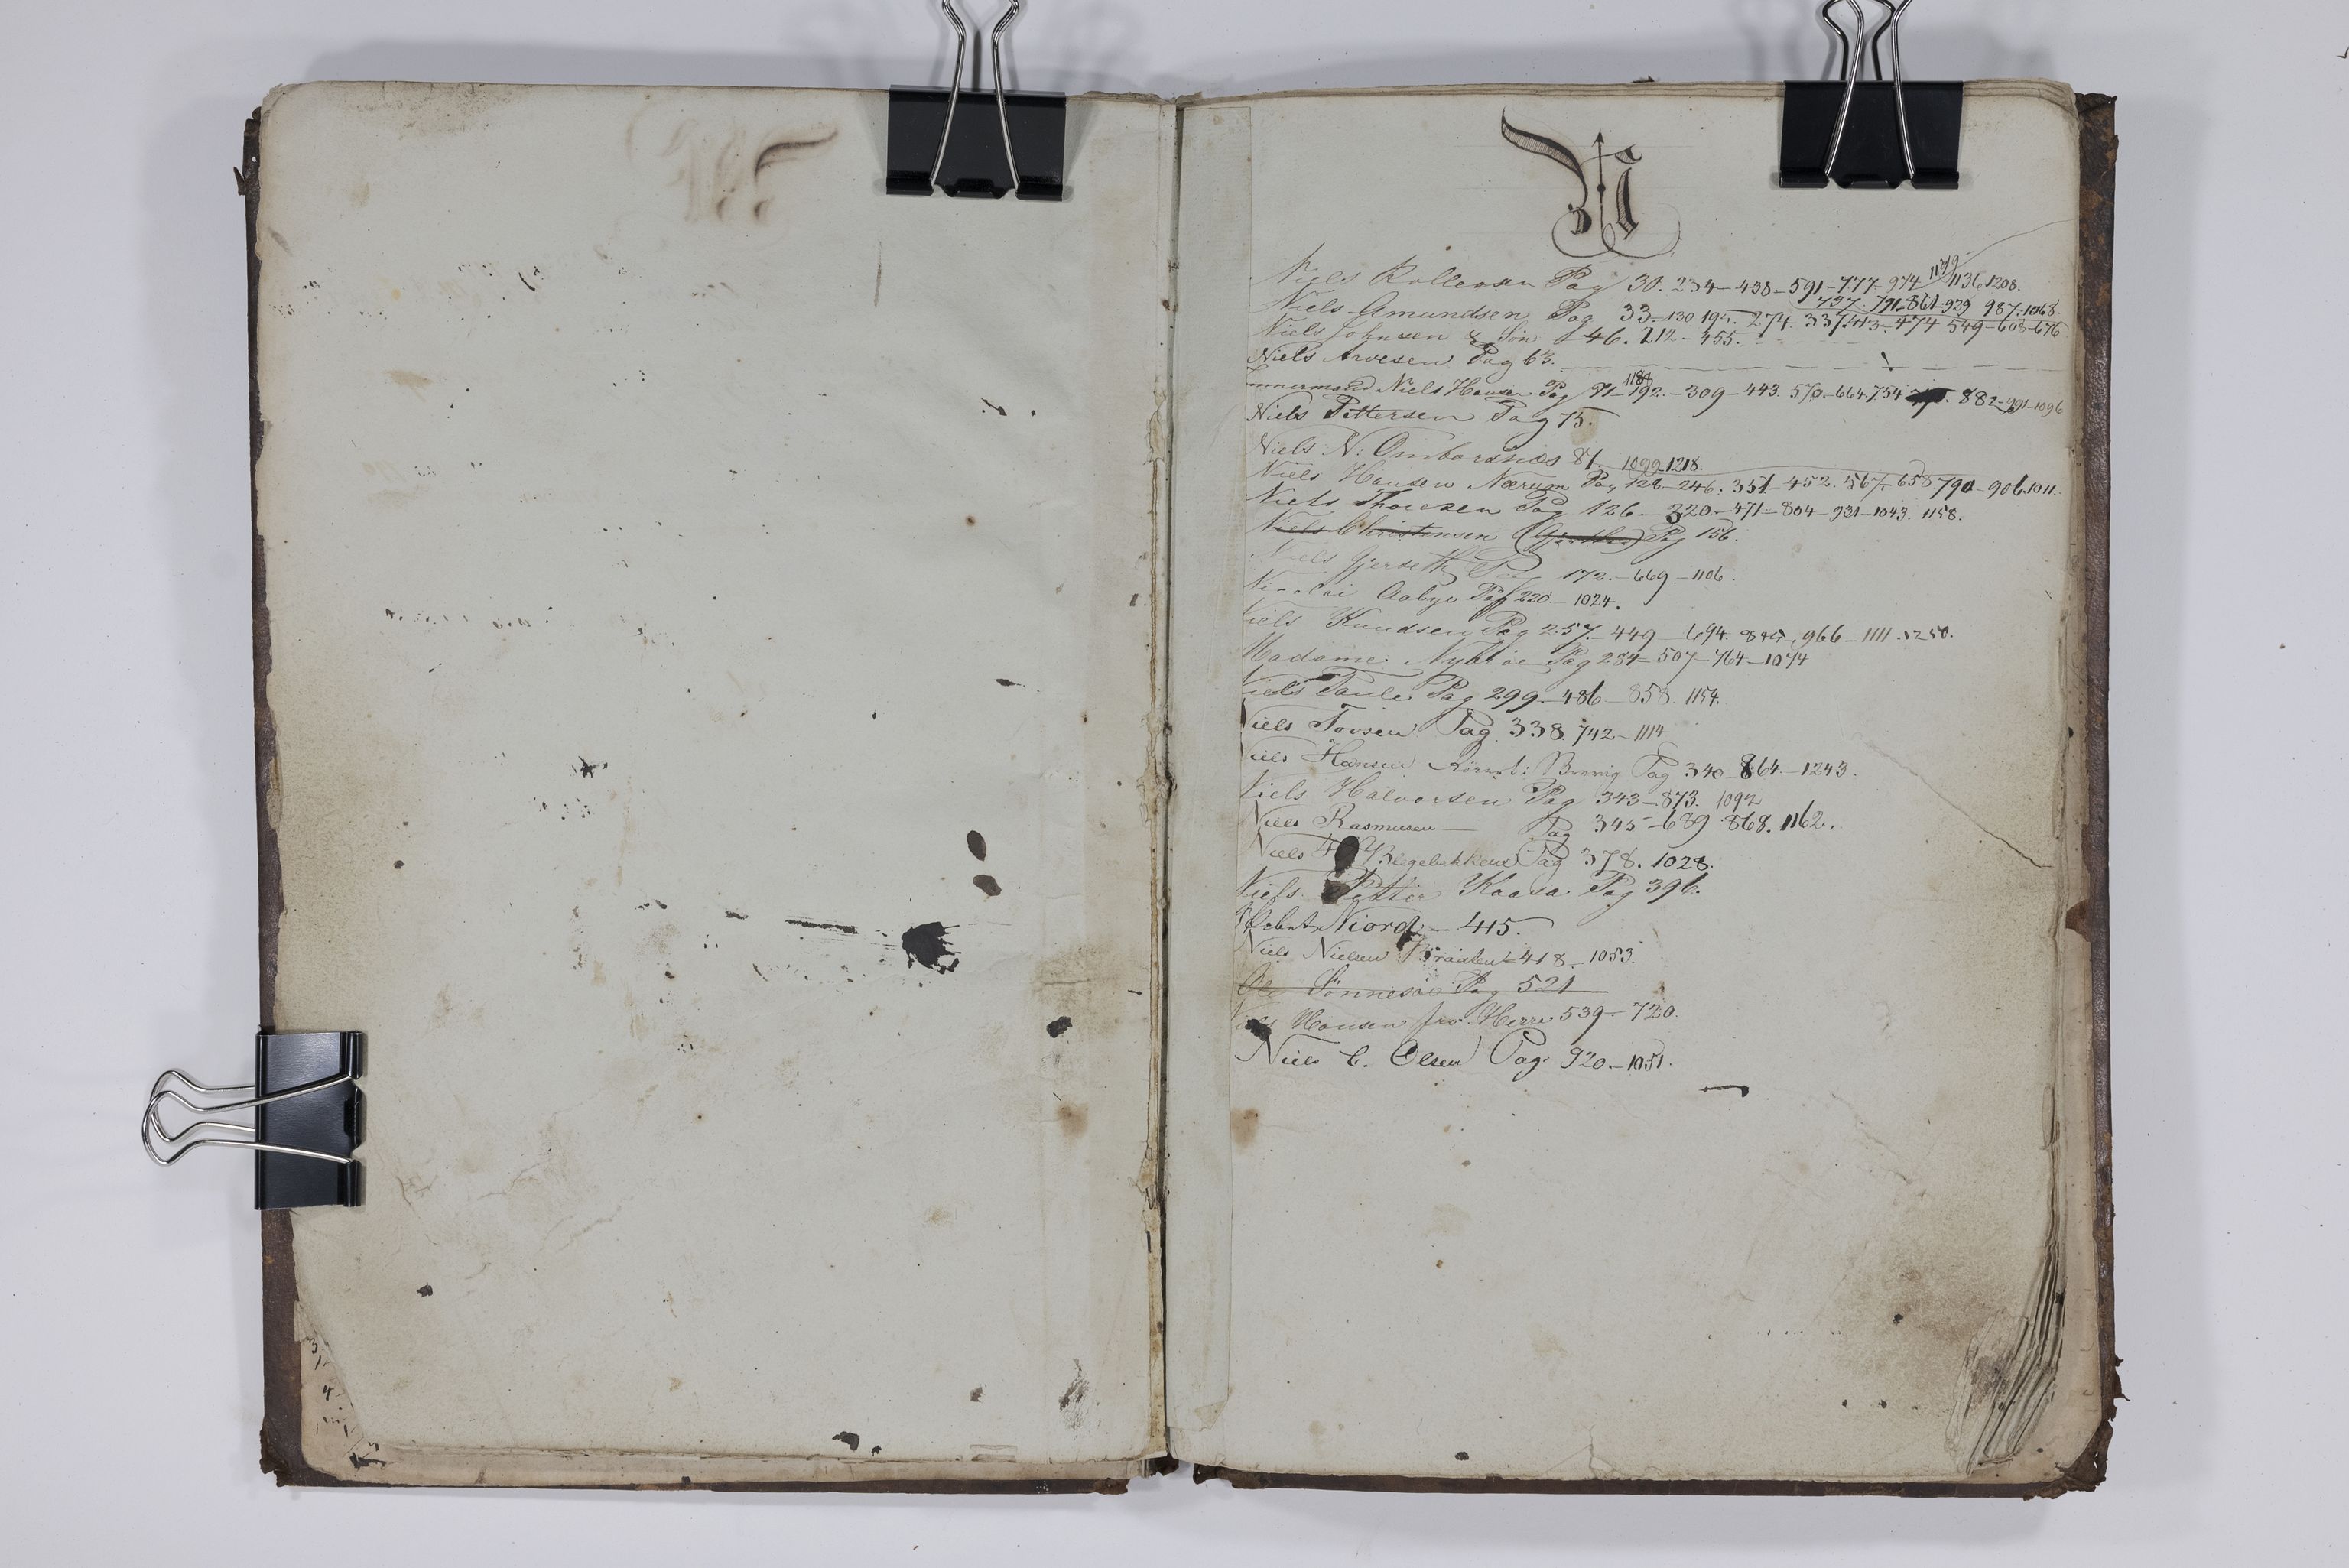 N
Niels Rollevsen Pag 30. 234 - 438 - 591 - 777 - 974 - 1179 1136 1208.
737. 791 - 861 - 929 987 - 1068.
Niels Amundsen Pag 33 - 130 195. 274. 337 443 - 474 549 - 603 - 676
Niels Johnsen & Søn 46. 212 - 455.
Niels Arvesen Pag 63.
Niels Hansen Pag 71 - 192 - 1188 309 - 443. 570 - 664 754 882 - 991 - 1096
Niels Pettersen Pag 75.
Niels N: Omborsnæs 81. 1099 1218.
Niels Hansen Nærum Pag 128 - 246. 351 - 452. 567 - 658 790 - 906. 1011.
Niels Thoresen Pag 126 - 320 - 471 - 804 - 931 - 1043. 1158.
Niels Christensen Pag 156.
Niels Gjerseth Pag 172. - 669. - 1106.
Nicolai Aabye Pag 220 - 1024.
Niels Knudsen Pag 257. - 449 - 694. 966 - 1111. 1250.
Madame Pag 284 - 507 - 764 - 1074
Niels Taule Pag 299. - 486 - 858. 1154.
Niels Tovsen Pag. 338. 742 - 1114
Niels Hansen Pag 340 - 864 - 1243.
Niels Halvorsen Pag 343 - 873. 1092
Niels Rasmusen Pag 345 - 689 868. 1162.
Niels Pag 378. 1028.
Niels Petter Kaasa. Pag 396.
Niord - 415.
Niels Nielsen 418 - 1053.
Ole Sönnesen Pag 521
Niels Hansen fra Herre 539 - 720.
Niels C. Olsen Pag. 920. - 1051.